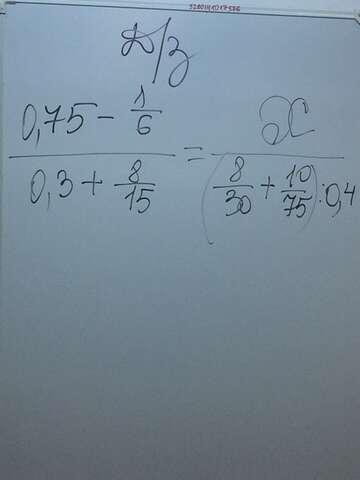 Д/з
0,75 - 1/6 / 0,3 + 8/15 = x / (8/30 + 10/75) : 0,4